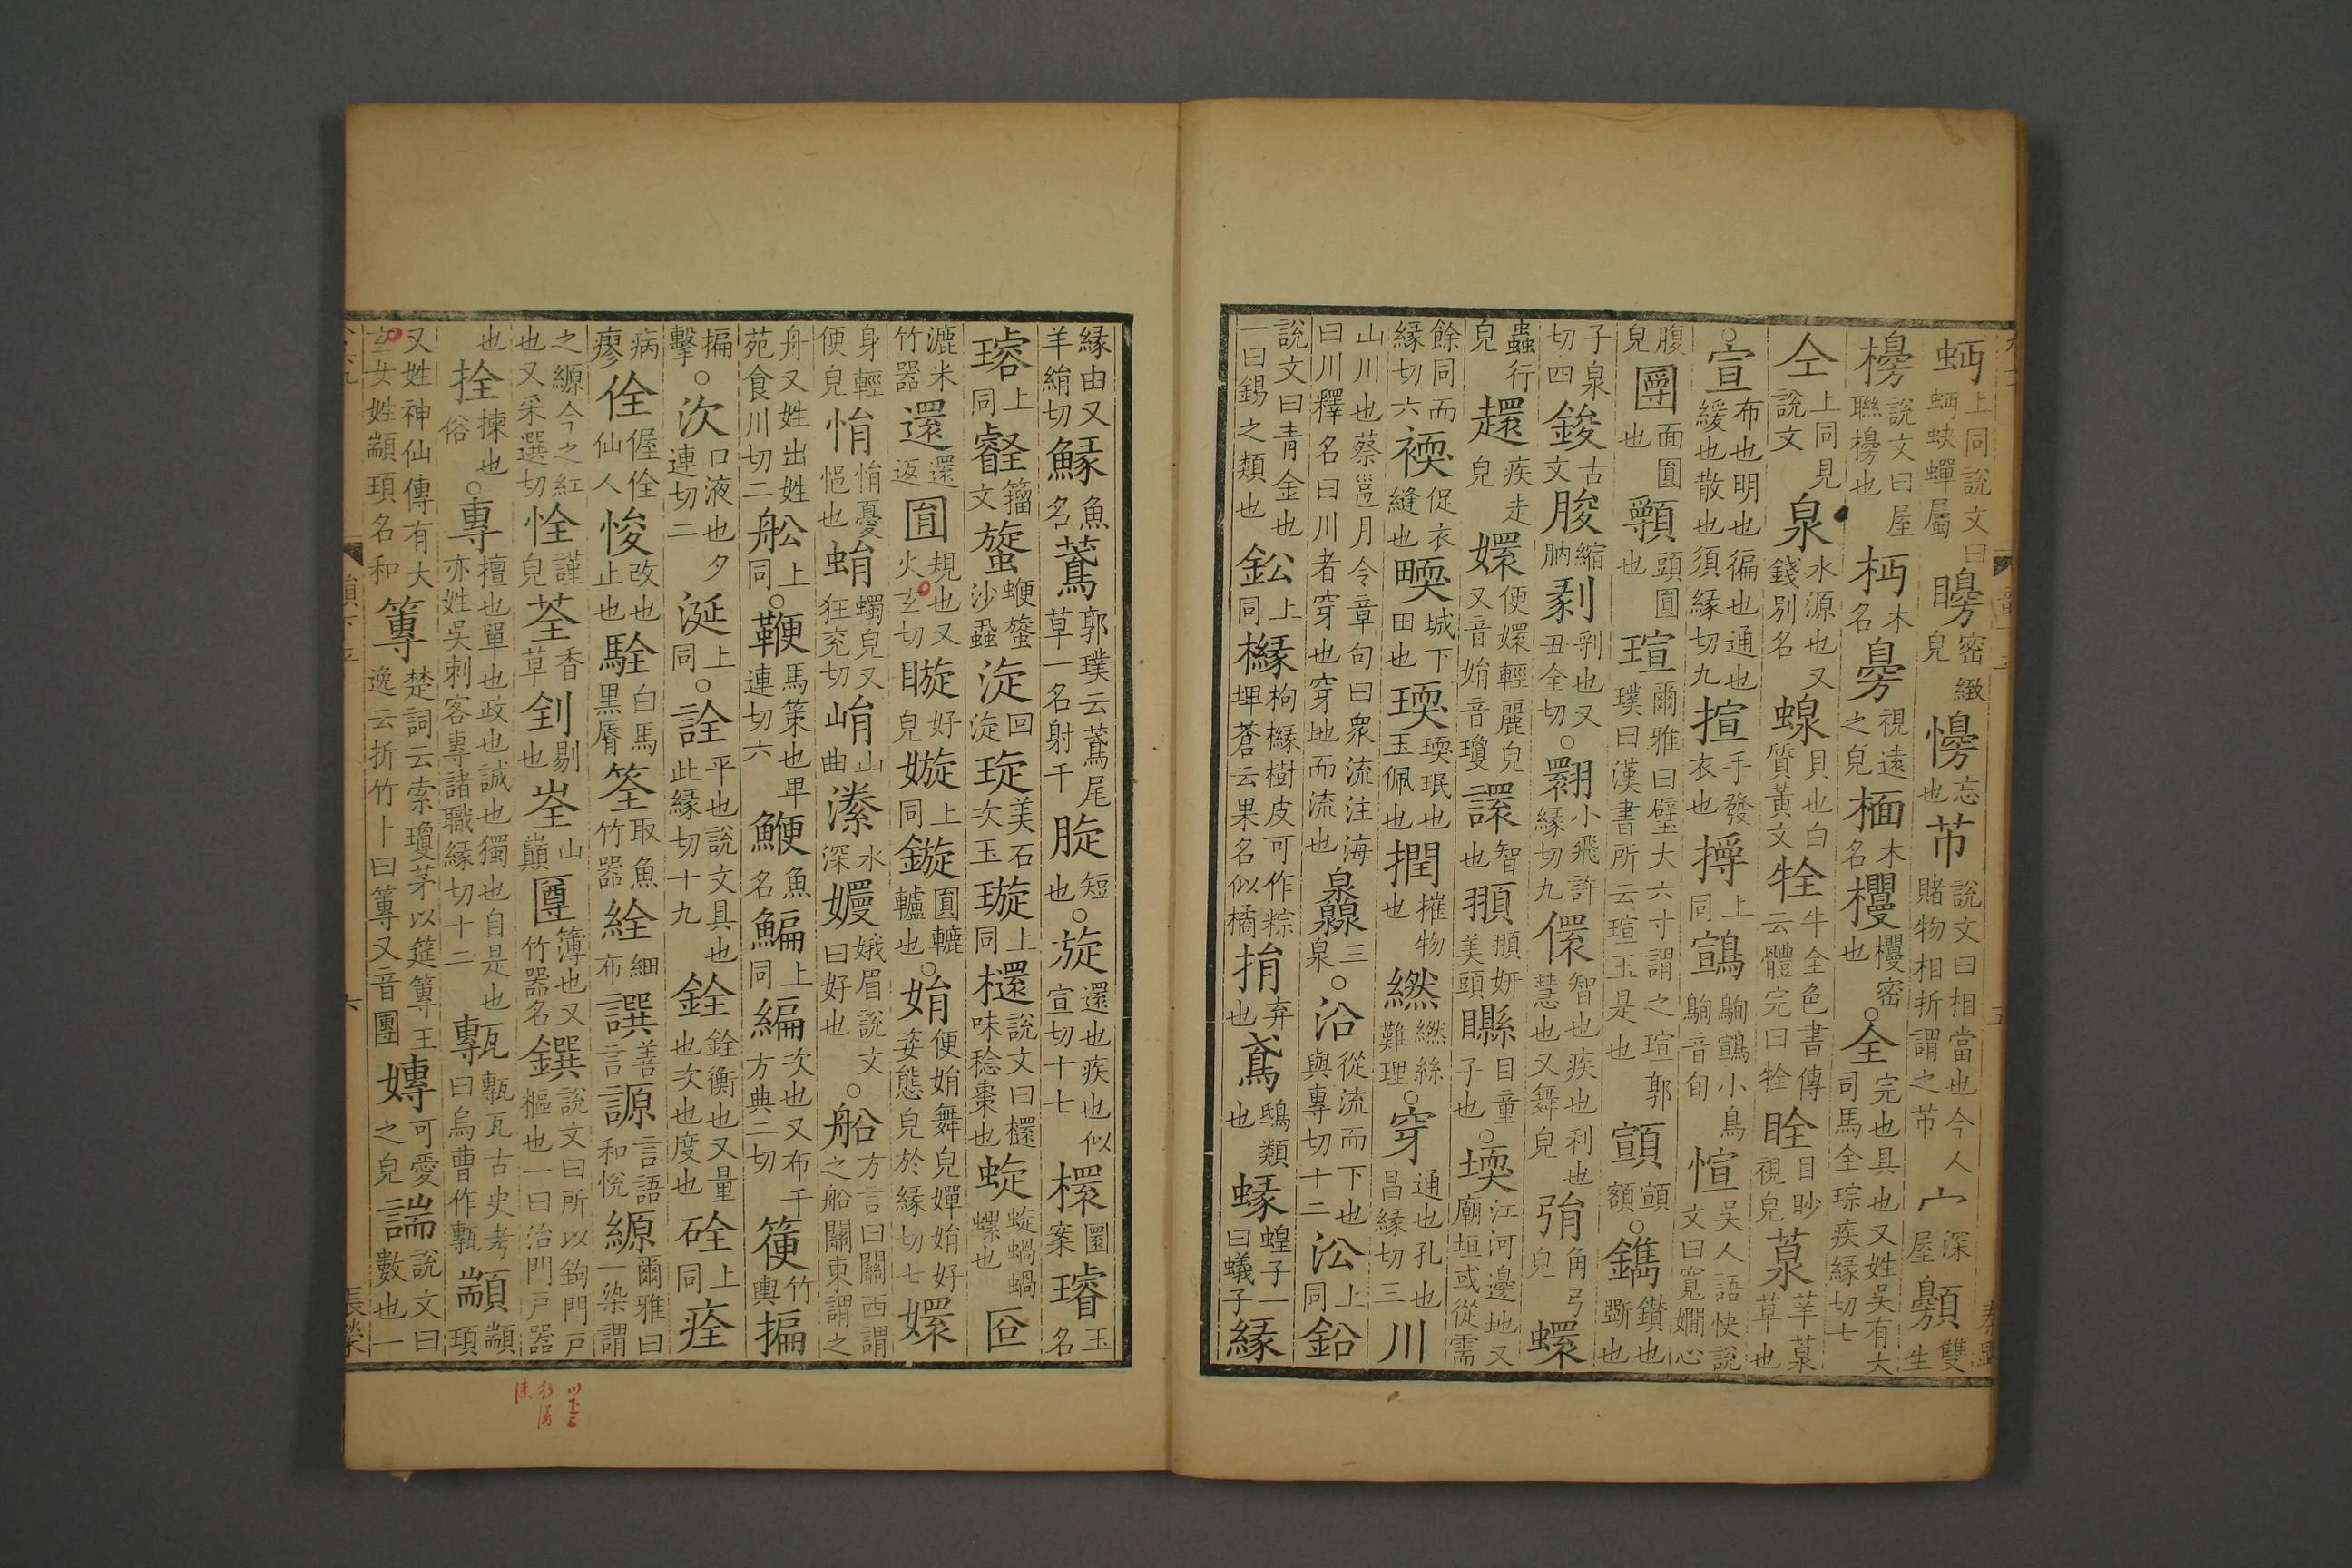 蚵上同說文曰蚵蚗蟬屬矏密緻皃㦭忘也㒼說文曰相當也今人賭物相折謂之㒼宀深屋顭雙生
櫋說文曰屋聯櫋也枑木名臱視遠之皃楄木名櫌櫌密也○全完也具也又姓吳有大司馬全琮疾緣切七
仝上同見說文泉水源也又錢別名蜾貝也白質黃文牷牛全色書傳云體完曰牷䀬目眇視皃葲䒢葲草也
○宣布也明也徧也通也緩也散也須緣切九揎手發衣也㩊上同䳦駨䳦小鳥駨音旬愃吳人語快說文曰寬嫺心
腹皃圑面圓也顐頭圓也瑄爾雅曰璧大六寸謂之瑄郭璞曰漢書所云瑄玉是也䫂頭額○鐫鑽也斲也
子泉切四鋑古文朘縮朒剶剝也又丑全切○翾小飛許緣切九儇智也疾也利也慧也又舞皃弲角弓皃蠉
蟲行皃趯疾走皃嬛便嬛輕麗皃又音娟音瓊譞智也䎀䎀妍美頭䁵目童子也○堧江河邊地又廟垣或從需
餘同而緣切六褗促衣縫也畽城下田也瑌瑌珉也玉佩也撋摧物也繎繎絲難理○穿通也孔也昌緣切三川
山川也蔡邕月令章句曰衆流注海曰川釋名曰川者穿也穿地而流也灥三泉○沿從流而下也與專切十二㳂上同鉛
說文曰青金也一曰錫之類也鈆上同櫞枸櫞樹皮可作粽埤蒼云果名似橘捐弃也鳶鴟類也蝝蝗子一曰蟻子緣
緣由又羊絹切鱌魚名蔦郭璞云蔦尾草一名射干䏓短也○旋還也疾也似宣切十七檈圜案璿玉名
璿上同㪚籀文䗠蝂䗠沙蝨淀回淀琁美石次玉璇上同檈說文曰檈味稔棗也蜁蜁蝸蝸螺也匼
漉米竹器還還返圎規也又火玄切䁢好皃嫙上同鏇圓轆轤也○娟便娟舞皃嬋娟好姿態皃於緣切七嬛
身輕便皃悁悁憂悒也蜎蠋皃又狂兖切崤山曲灤水深嬽娥眉說文曰好也○船方言曰關西謂之船關東謂之
舟又姓出姓苑食川切二舩上同○鞭馬策也卑連切六鯾魚名鯿上同編次也又布千方典二切箯竹輿揙
揙擊○次口液也夕連切二涎上同○詮平也說文具也此緣切十九銓銓衡也又量也次也度也硂上同痊
病瘳佺偓佺仙人悛改也止也駩白馬黑脣筌取魚竹器絟細布譔善言謜言語和悅縓爾雅曰一染謂
之縓今之紅也又采選切恮謹皃荃香草剑剔也峑山巔圑簿也又竹器名鐉說文曰所以鉤門戶樞也一曰治門戶器
也拴揀也俗○專擅也單也政也誠也獨也自是也亦姓吳刺客專諸職緣切十二甎甎瓦古史考曰烏曹作甎顓顓頊
又姓神仙傳有大玄女姓顓頊名和篿楚詞云索瓊茅以筳篿王逸云折竹卜曰篿又音團嫥可愛之皃諯說文曰數也一